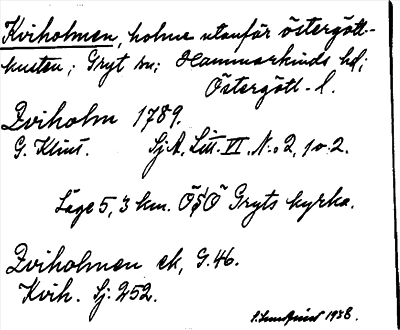 Kviholmen, holme utanför östergött-
kusten; Gryt sn; Hammarkinds hd;
Östergötl. l.
Zviholm 1789.
G. Klint. Sj A, Litt. VI, N:o 2, 10:2.
Läge 5,3 km. ÖSÖ Gryts kyrka.
Zviholmen ek, G. 46.
Kvih. Sj: 252.
1938.